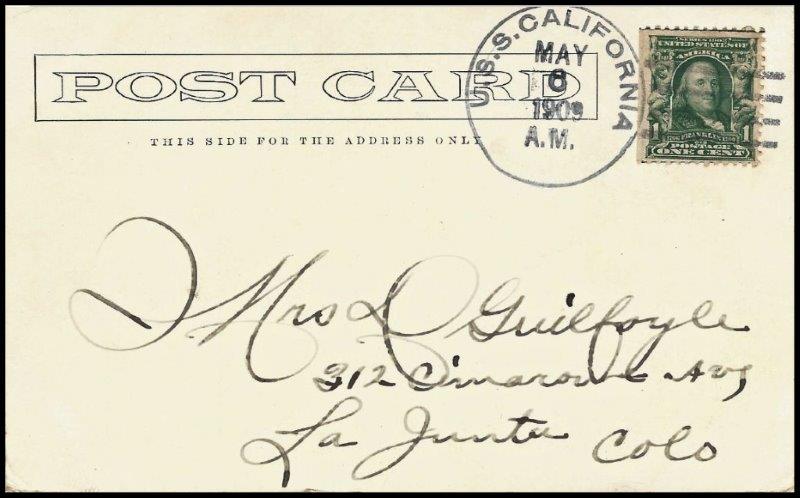 U.S.S. CALIFORNIA
MAY
6
1909
A.M.
SERIES 1902
UNITED STATES OF
AMERICA
1 FRANKLIN 1
POSTAGE
ONE CENT
POST CARD
THIS SIDE FOR THE ADDRESS ONLY
Mrs D Guilfoyle
312 Cimarron Av,
La Junta Colo